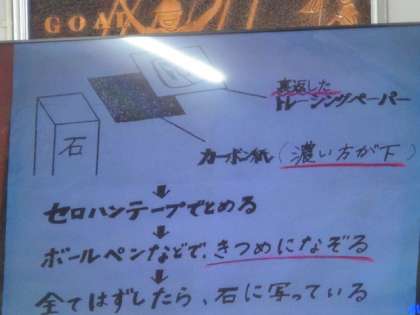 GOAL
裏返した
トレーシングペーパー
石
カーボン紙（濃い方が下）
セロハンテープでとめる
ボールペンなどで、きつめになぞる
全てはずしたら、石に写っている